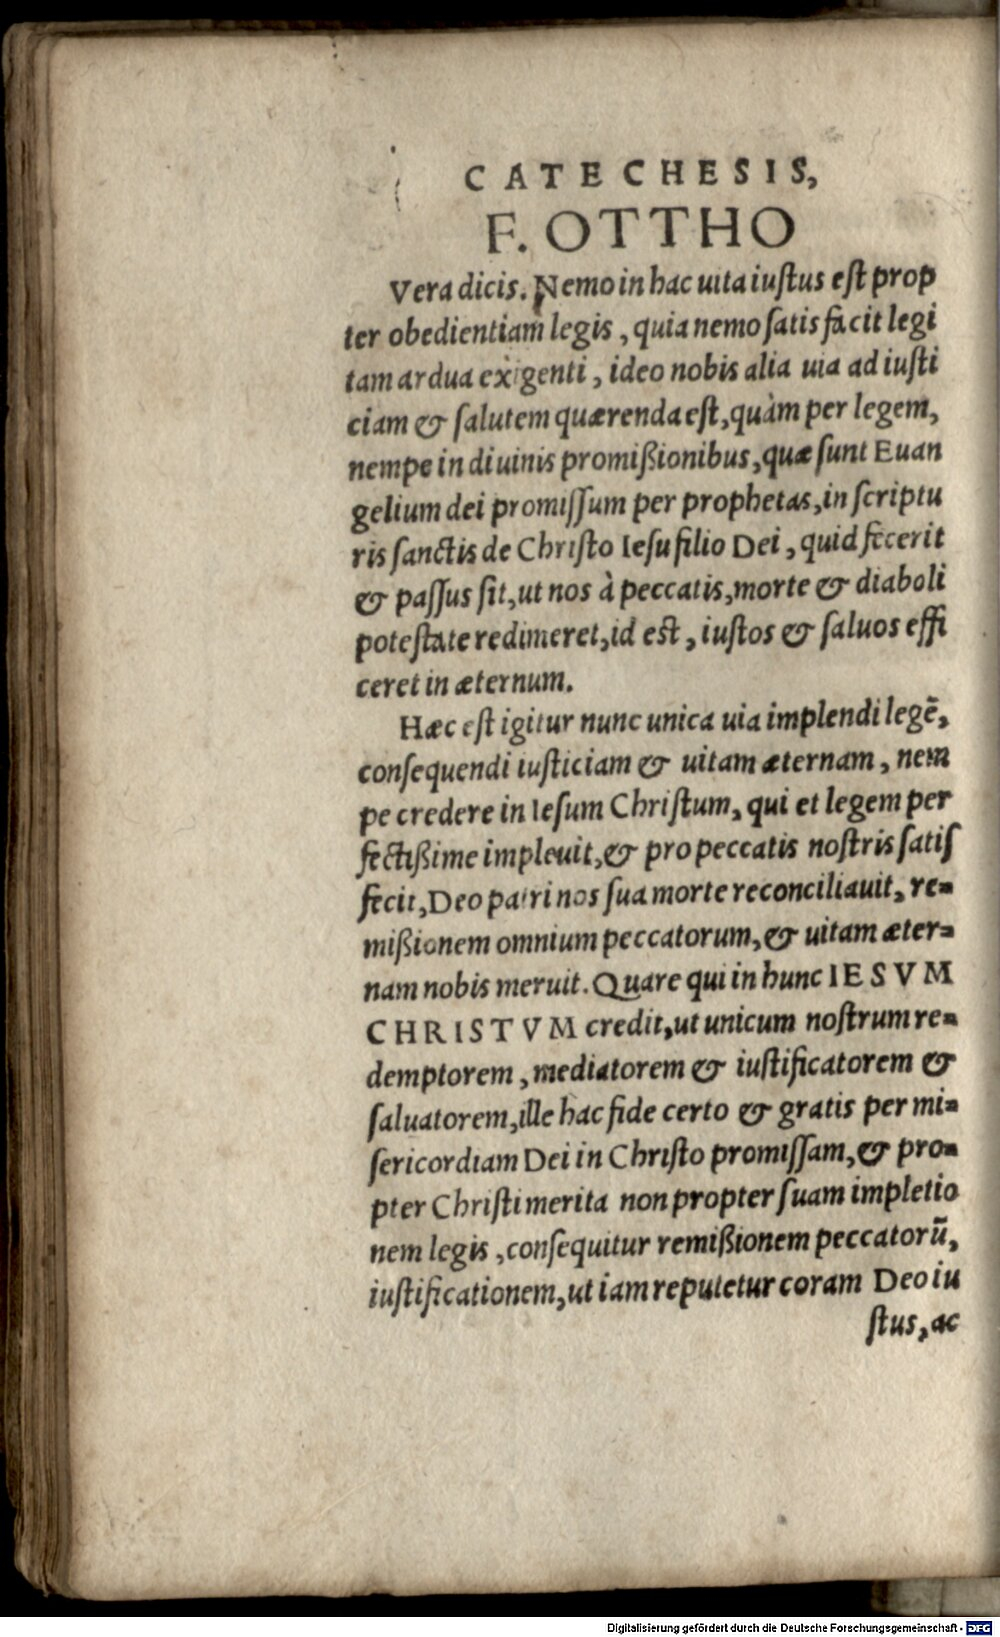 CATECHESIS,
F. OTTHO
Vera dicis. Nemo in hac uita iustus est prop
ter obedientiam legis, quia nemo satisfacit legi
tam ardua exigenti, ideo nobis alia uia ad iusti
ciam & salutem quærenda est, quàm per legem,
nempe in diuinis promißionibus, quæ sunt Euan
gelium dei promissum per prophetas, in scriptu
ris sanctis de Christo Iesu filio Dei, quid fecerit
& passus sit, ut nos à peccatis, morte & diaboli
potestate redimeret, id est, iustos & saluos effi
ceret in æternum.
Hæc est igitur nunc unica uia implendi legē,
consequendi iusticiam & uitam æternam, nem
pe credere in Iesum Christum, qui et legem per
fectißime impleuit, & pro peccatis nostris satis
fecit, Deo patri nos sua morte reconciliauit, re=
mißionem omnium peccatorum, & uitam æter=
nam nobis meruit. Quare qui in hunc IESVM
CHRISTVM credit, ut unicum nostrum re=
demptorem, mediatorem & iustificatorem &
saluatorem, ille hac fide certo & gratis per mi=
sericordiam Dei in Christo promissam, & pro=
pter Christi merita non propter suam impletio
nem legis, consequitur remißionem peccatorū,
iustificationem, ut iam reputetur coram Deo iu
stus, ac
Digitalisierung gefördert durch die Deutsche Forschungsgemeinschaft - DFG